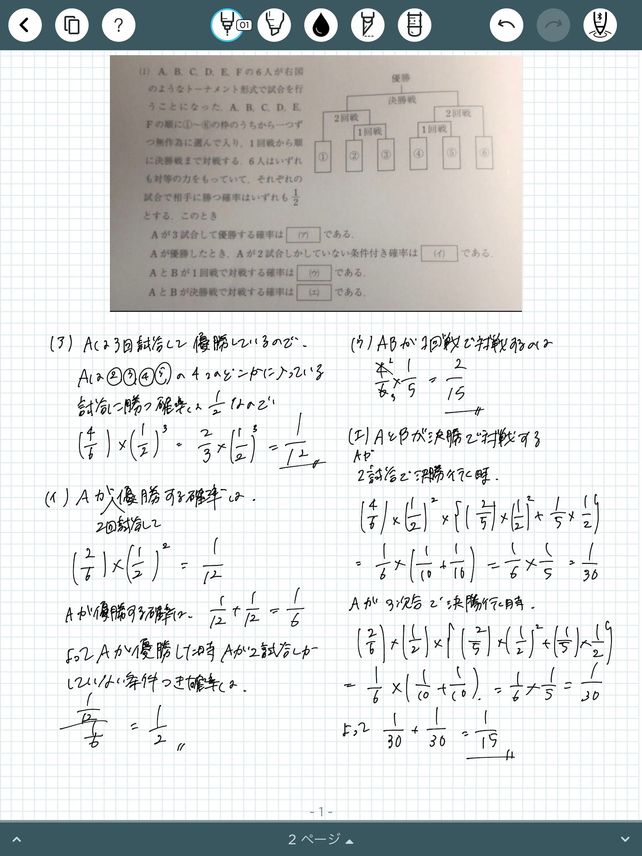 ?
01
(1) A, B, C, D, E, Fの6人が右図
のようなトーナメント形式で試合を行
うことになった. A, B, C, D, E,
Fの順に①〜⑥の枠のうちから一つず
つ無作為に選んで入り, 1回戦から順
に決勝戦まで対戦する. 6人はいずれ
も対等の力をもっていて, それぞれの
試合で相手に勝つ確率はいずれも 1/2
とする. このとき
優勝
決勝戦
2回戦 2回戦
1回戦 1回戦
① ② ③ ④ ⑤ ⑥
Aが3試合して優勝する確率は (ア) である.
Aが優勝したとき, Aが2試合しかしていない条件付き確率は (イ) である.
AとBが1回戦で対戦する確率は (ウ) である.
AとBが決勝戦で対戦する確率は (エ) である.
(ア) Aは3回試合して優勝しているので、
Aは②,③,④,⑤の4つのどこかに入っている
試合に勝つ確率は 1/2 なので
(4/6)×(1/2)^3 = 2/3×(1/2)^3 = 1/12
(イ) Aが優勝する確率は.
2回試合して
(2/6)×(1/2)^2 = 1/12
Aが優勝する確率は. 1/12+1/12 = 1/6
よってAが優勝した時Aが2試合しか
していない条件つき確率は.
1/12 / 1/6 = 1/2
(ウ) ABが1回戦で対戦するのは
4/6 × 1/5 = 2/15
2
3
(エ) AとBが決勝で対戦する
Aが
2試合で決勝行く時.
(4/6)×(1/2)^2×{(2/5)×(1/2)^2+1/5×1/2}
= 1/6×(1/10+1/10) = 1/6×1/5 = 1/30
Aが 次合で決勝行く時.
(2/6)×(1/2)×{(2/5)×(1/2)^2+(1/5)×1/2}
= 1/6×(1/10+1/10). = 1/6×1/5 = 1/30
よって 1/30+1/30 = 1/15
- 1 -
2 ページ